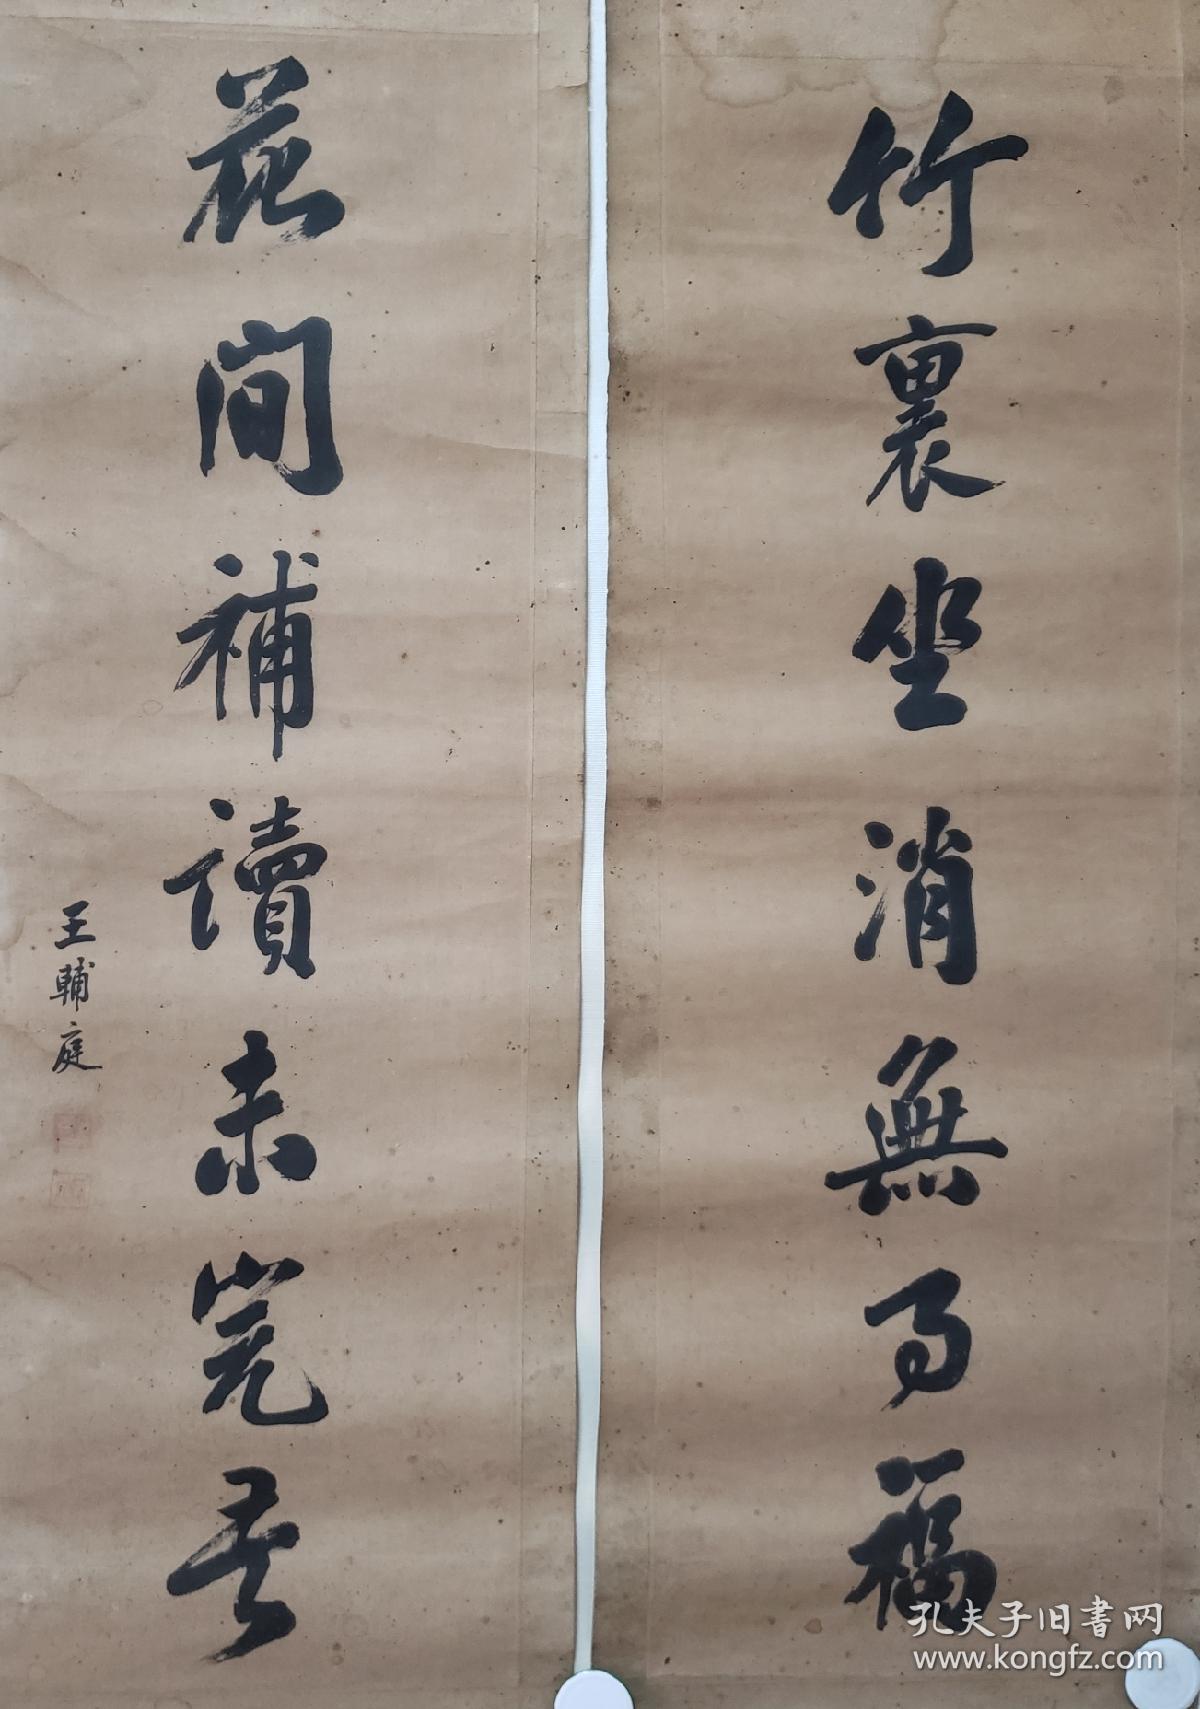 竹裏坐消無事福
花間補讀未完書
王輔庭
孔夫子旧书网
www.kongfz.com